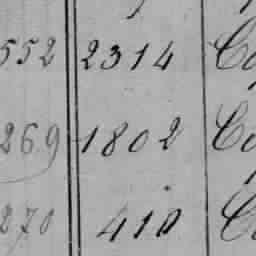 552 2314 Co
269 1802 Co
270 410 C